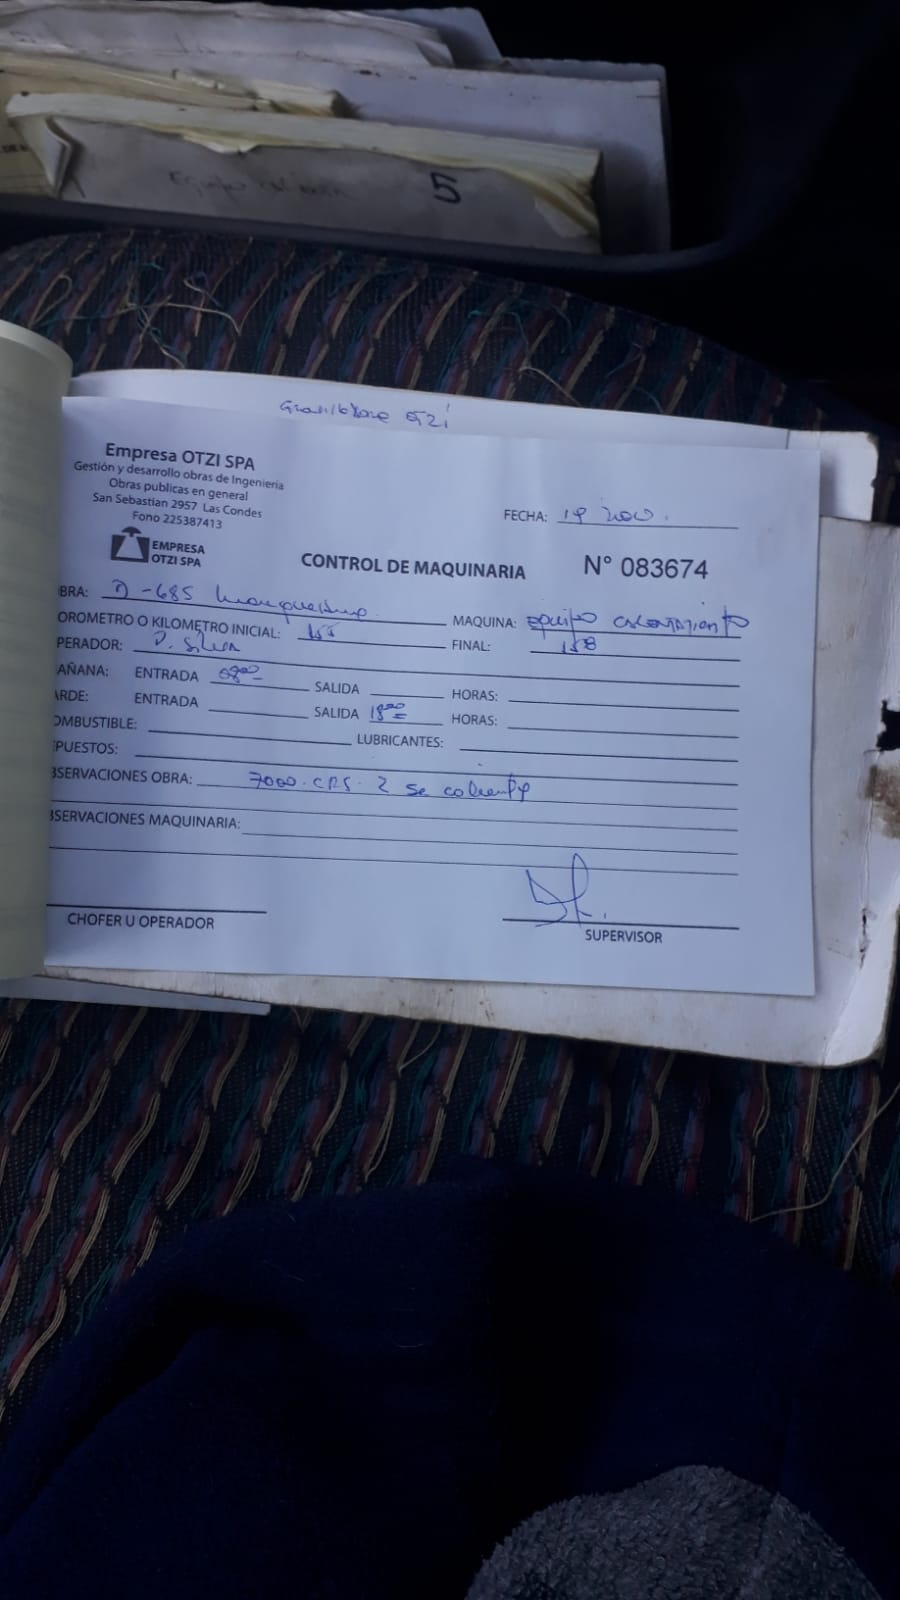 5
OTZI
Empresa OTZI SPA
Gestión y desarrollo obras de Ingenieria
Obras publicas en general
San Sebastian 2957 Las Condes
Fono 225387413
EMPRESA
OTZI SPA
FECHA: 19 nov.
CONTROL DE MAQUINARIA
N° 083674
BRA: D-685
MAQUINA: equipo
OROMETRO O KILOMETRO INICIAL: 155
FINAL: 158
PERADOR: D. Silva
AÑANA: ENTRADA 08:00 SALIDA HORAS:
ARDE: ENTRADA SALIDA 18:00 HORAS:
OMBUSTIBLE: LUBRICANTES:
PUESTOS:
SERVACIONES OBRA: 7000 CRS-2 se
SERVACIONES MAQUINARIA:
CHOFER U OPERADOR
SUPERVISOR